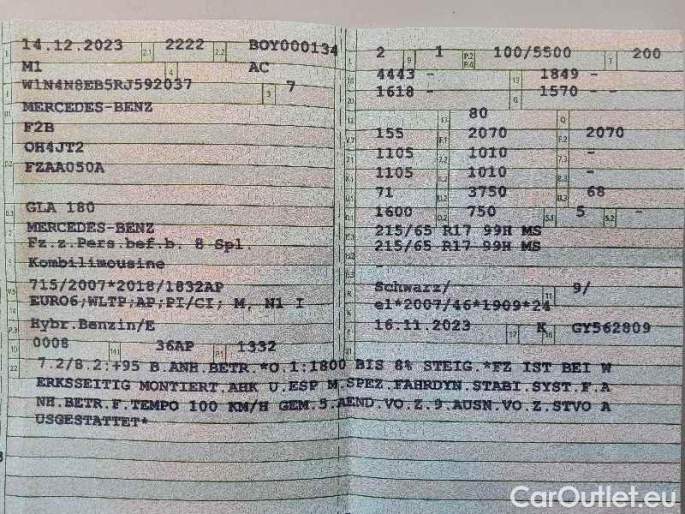 14.12.2023 2222 BOY000134
M1 AC
W1N4N8EB5RJ592037 7
MERCEDES-BENZ
F2B
OH4JT2
FZAA050A
GLA 180
MERCEDES-BENZ
Fz.z.Pers.bef.b. 8 Spl.
Kombilimousine
715/2007*2018/1832AP
EURO6;WLTP;AP;PI/CI; M, N1 I
Hybr.Benzin/E
0008 36AP 1332
2 1 100/5500 200
4443 - 1849 -
1618 - 1570 - -
80
155 2070 2070
1105 1010 -
1105 1010 -
71 3750 68
1600 750 5 -
215/65 R17 99H MS
215/65 R17 99H MS
Schwarz/ 9/
e1*2007/46*1909*24
16.11.2023 K GY562809
7.2/8.2:+95 B.ANH.BETR.*O.1:1800 BIS 8% STEIG.*FZ IST BEI W
ERKSSEITIG MONTIERT.AHK U.ESP M.SPEZ.FAHRDYN.STABI.SYST.F.A
NH.BETR.F.TEMPO 100 KM/H GEM.5.AEND.VO.Z.9.AUSN.VO.Z.STVO A
USGESTATTET*
CarOutlet.eu